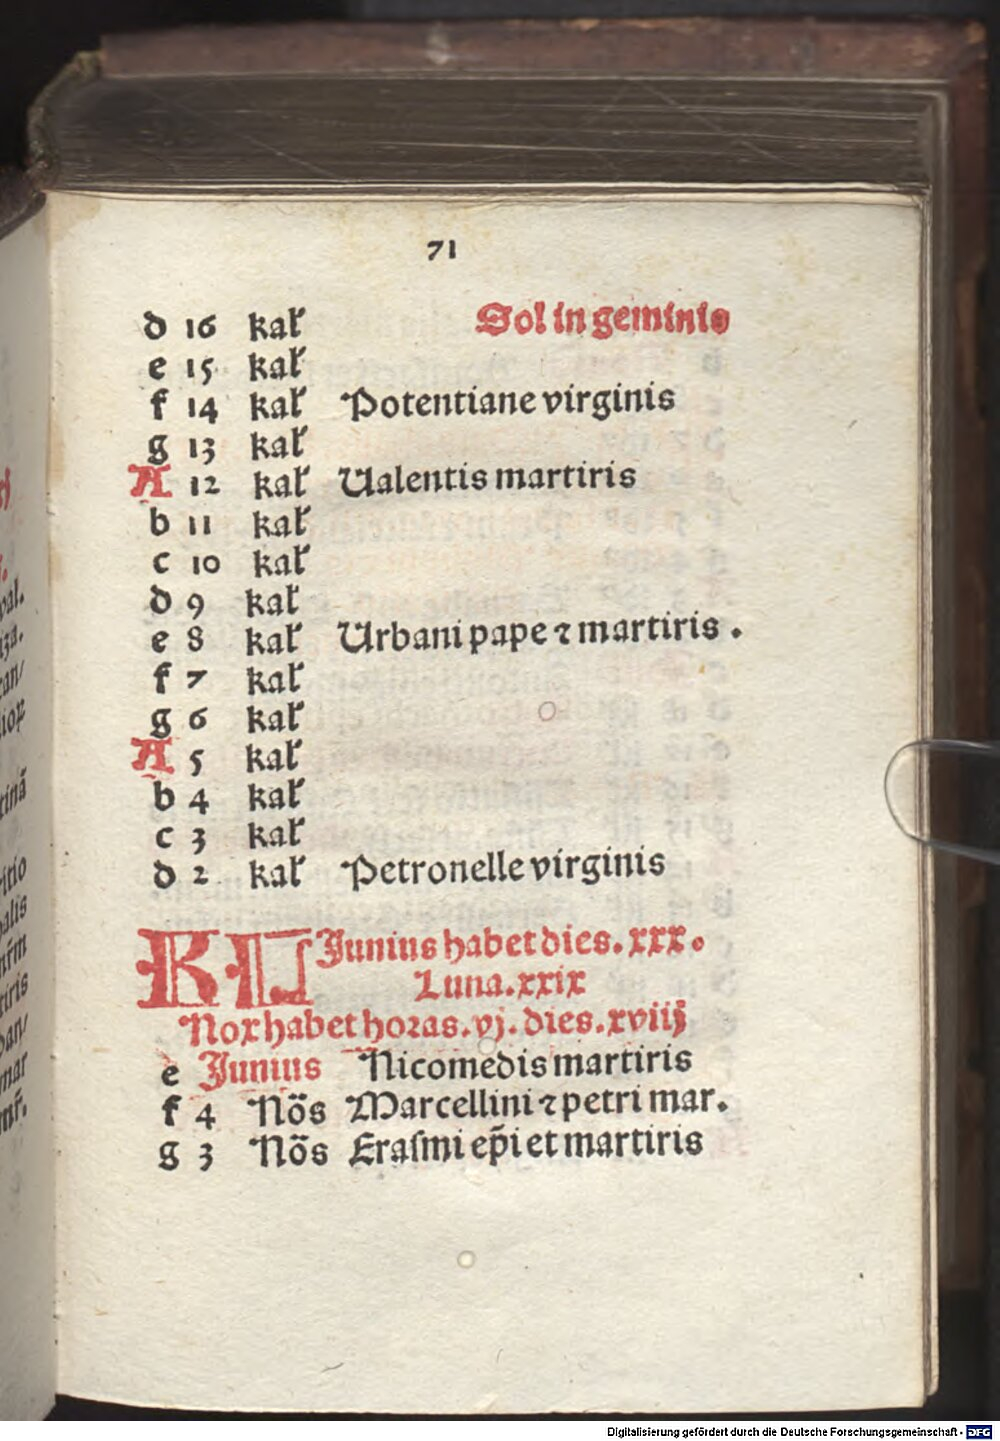 71
d 16 kal̃ Sol in geminis
e 15 kal̃
f 14 kal̃ Potentiane virginis
g 13 kal̃
A 12 kal̃ Ualentis martiris
b 11 kal̃
c 10 kal̃
d 9 kal̃
e 8 kal̃ Urbani pape ⁊ martiris .
f 7 kal̃
g 6 kal̃
A 5 kal̃
b 4 kal̃
c 3 kal̃
d 2 kal̃ Petronelle virginis
KL Junius habet dies. xxx.
Luna. xxix
Nox habet horas. vj. dies. xviij
e Junius Nicomedis martiris
f 4 Nõs Marcellini ⁊ petri mar.
g 3 Nõs Eraſmi ep̃i et martiris
Digitalisierung gefördert durch die Deutsche Forschungsgemeinschaft - DFG